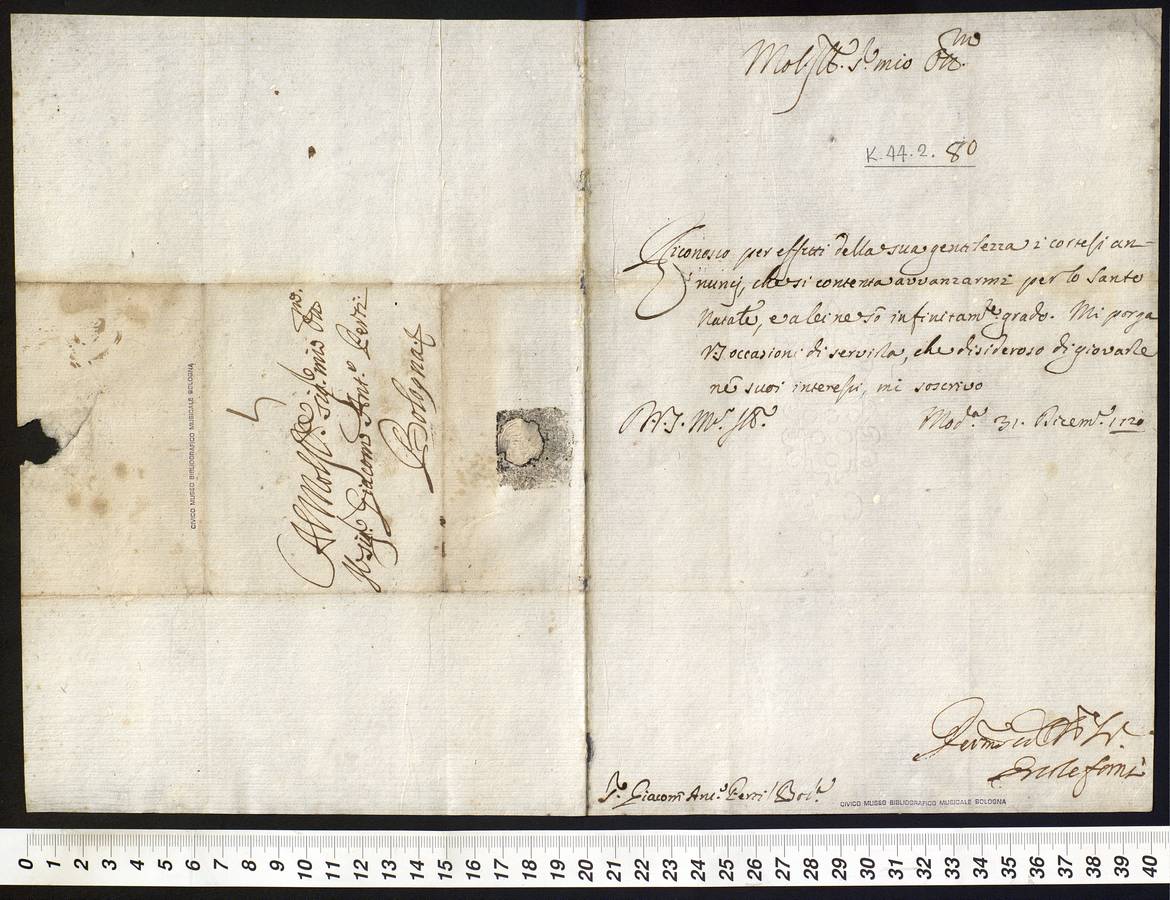 Mol. Ill. Sr. mio Oss.mo
K.44.2. 80
Riconosco per effetti della sua gentilezza i cortesi an-
nuncj, che si contenta avvanzarmi per lo Santo
Natale, e a lei ne sò infinitam.te grado. Mi porga
VS occasioni di servirla, che disideroso di giovarle
ne suoi interessi, mi soscrivo
D. V. S. M.o Ill.e
Mod.a 31. Dicem.e 1720
Ercole
S.r Giacom Ant.o Perti / Bol.a
CIVICO MUSEO BIBLIOGRAFICO MUSICALE BOLOGNA
Al Mol. Ill.e Sig.re mio Oss.mo
Il Sig.r Giacomo Ant.o Perti
Bologna
CIVICO MUSEO BIBLIOGRAFICO MUSICALE BOLOGNA
0 1 2 3 4 5 6 7 8 9 10 11 12 13 14 15 16 17 18 19 20 21 22 23 24 25 26 27 28 29 30 31 32 33 34 35 36 37 38 39 40